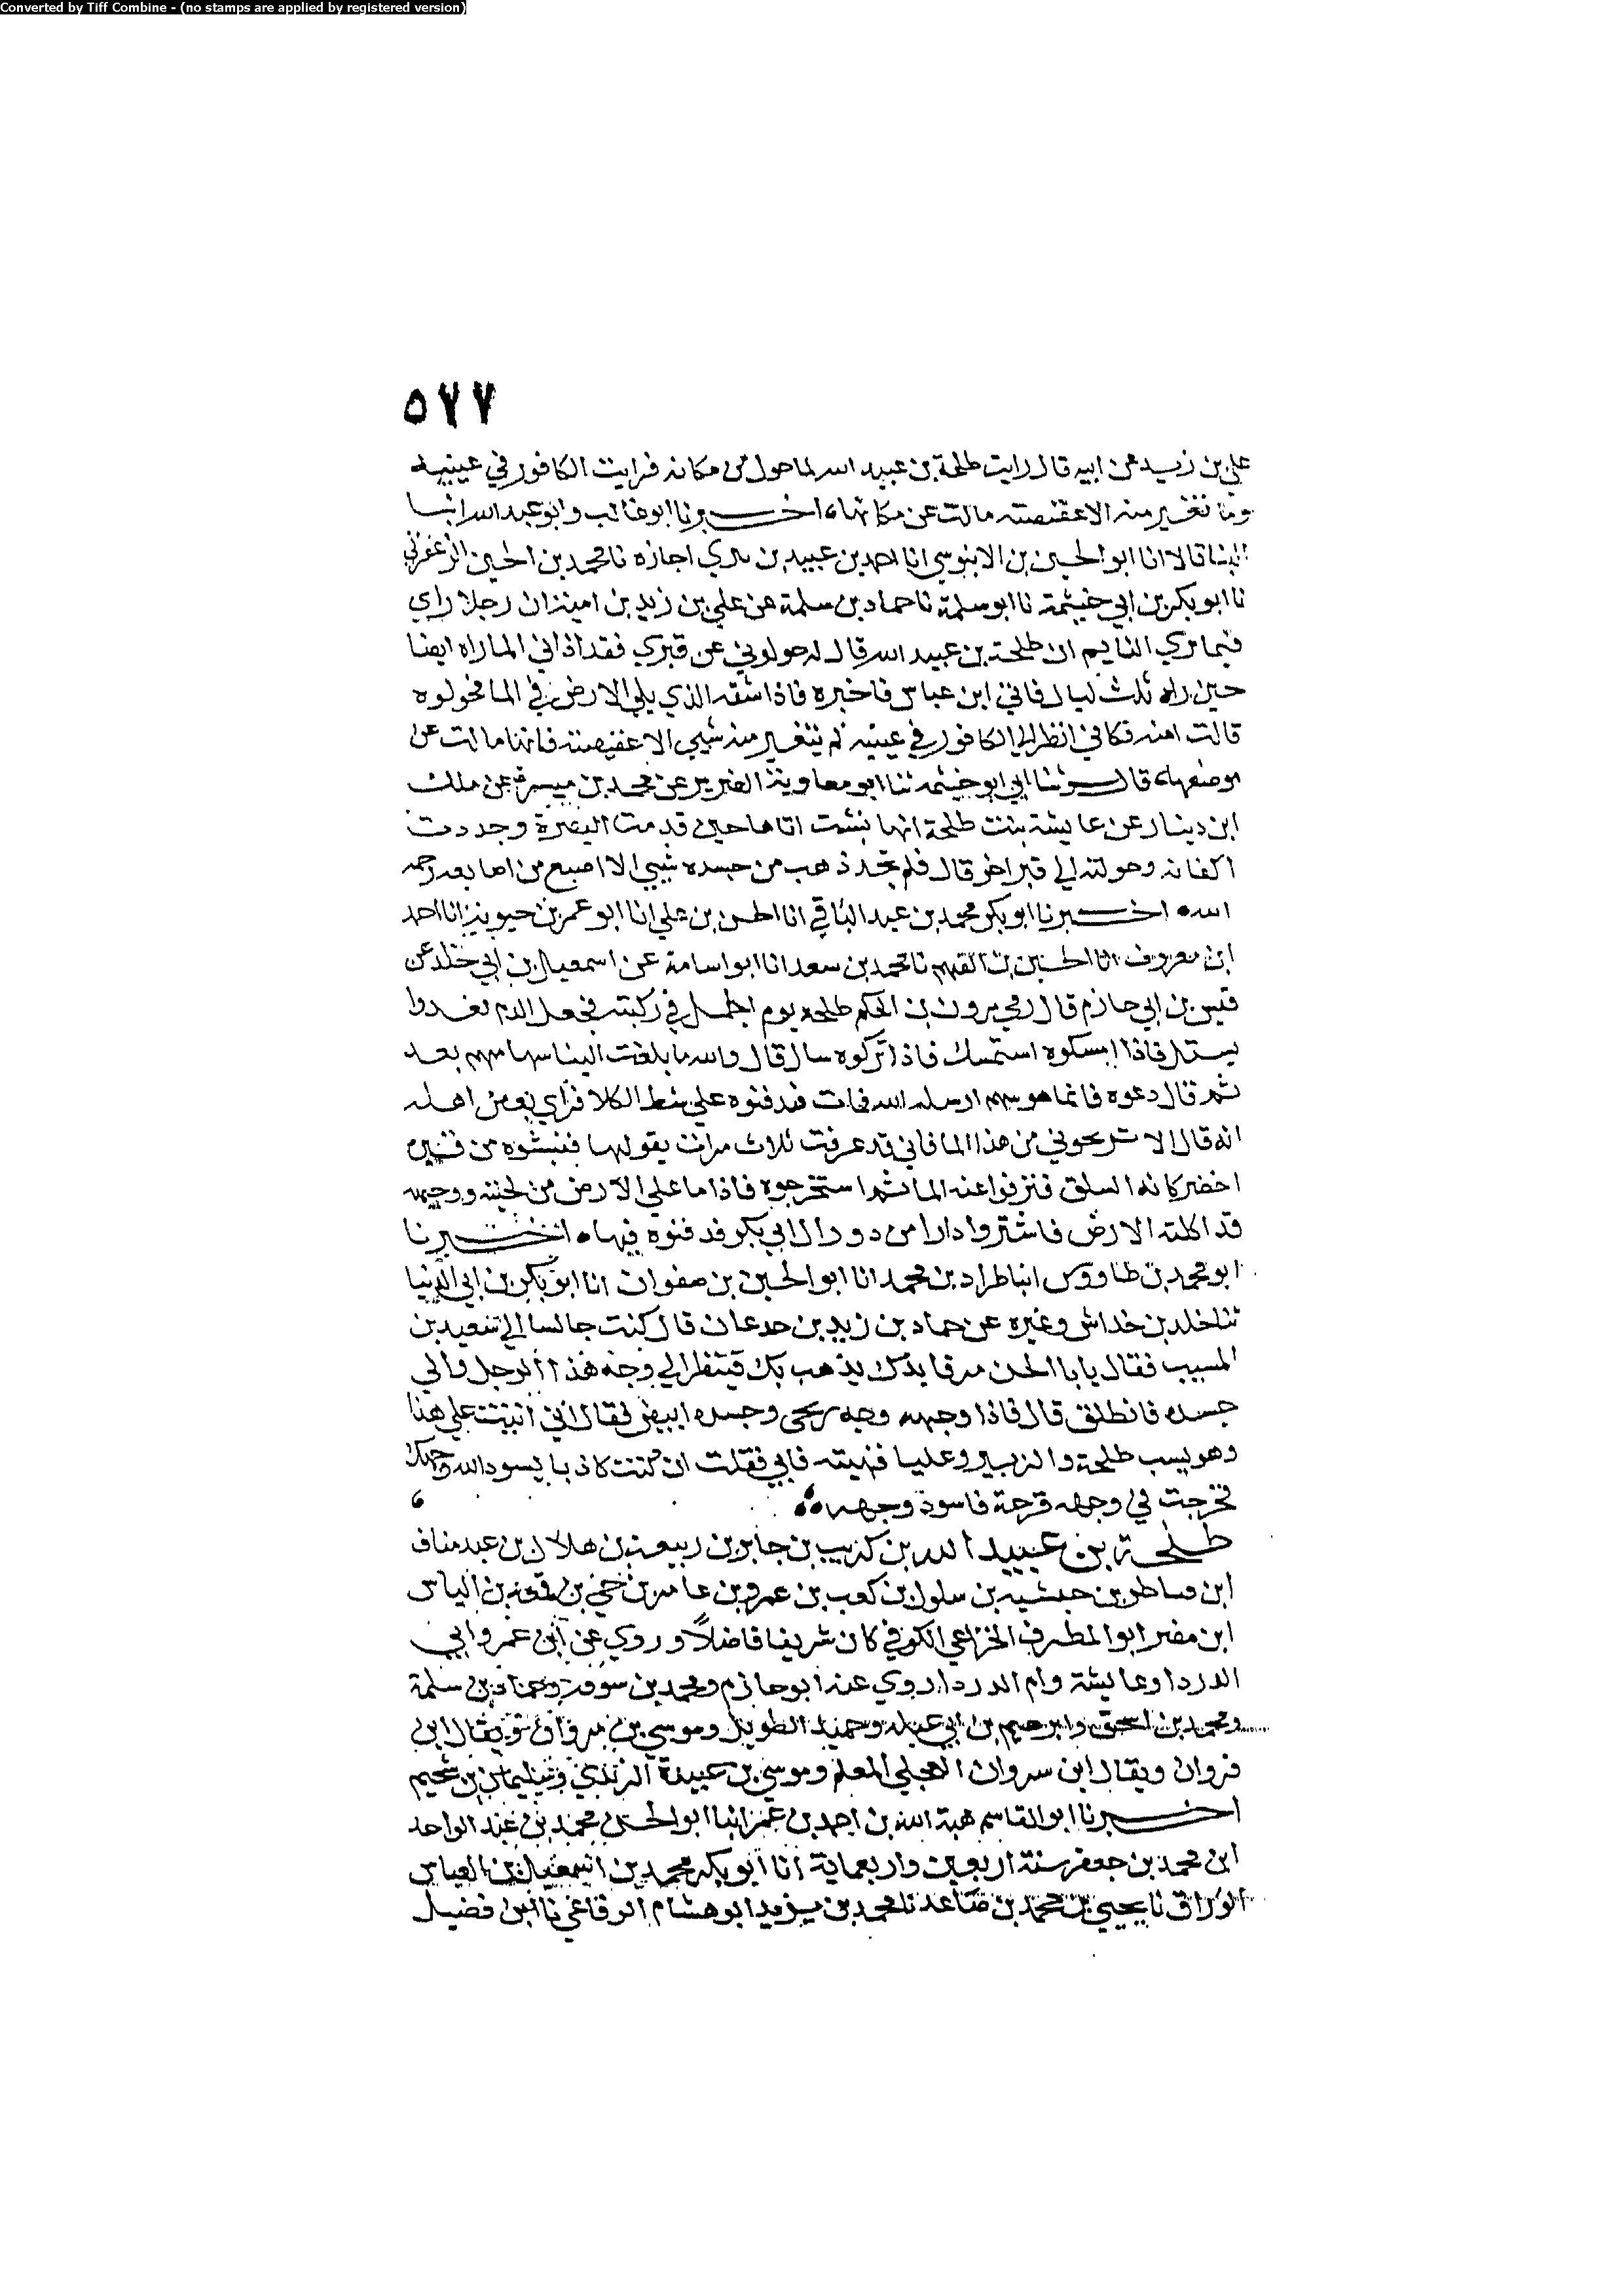 Converted by Tiff Combine - (no stamps are applied by registered version)
٥٧٧
علي بن زيد عن ابيه قال رايت طلحة بن عبيد الله لما حول من مكانه فرايت الكافور في عينيه
وما تغير منه الا عقيصته مالت عن مكانها اخبرنا ابو غالب وابو عبد الله ابنا
البنا قالا انا ابو الحسين بن الابنوسي انا احمد بن عبيد بن بيري اجازه نا محمد بن الحسين الزعفراني
نا ابو بكر بن ابي خيثمة نا ابو سلمة نا حماد بن سلمة عن علي بن زيد بن امية ان رجلا راي
فيما يري النايم ان طلحة بن عبيد الله قال له حولوني عن قبري فقد اذاني الما راه ايضا
حين راه ثلث ليال فاتي ابن عباس فاخبره فاذا شقه الذي يلي الارض في الما فحولوه
قالت امنه فكاني انظر الي الكافور في عينيه لم يتغير منه شيي الا عقيصته فانها مالت عن
موضعها قال وثنا ابي ابو خيثمه ثنا ابو معاوية الضرير عن محمد بن ميسرة عن ملك
ابن دينار عن عايشة بنت طلحة انها نبشت اتاها حين قدمت البصرة وجددت
اكفانه وحولته الي قبر اخر قال فلم تجد ذهب من جسده شيي الا اصبع من اصابعه رحمه
الله اخبرنا ابو بكر محمد بن عبد الباقي انا الحسن بن علي انا ابو عمر بن حيوية انا احمد
ابن معروف انا الحسين بن الفهم نا محمد بن سعد انا ابو اسامة عن اسمعيل بن ابي خلد عن
قيس بن ابي حازم قال رمي مرون بن الحكم طلحة يوم الجمل في ركبته فجعل الدم يغدوا
يسيل فاذا امسكوه استمسك فاذا تركوه سال قال والله ما بلغت الينا سهامهم بعد
ثم قال دعوه فانما هو سهم ارسله الله فمات فدفنوه علي شط الكلا فراي بعض اهله
انه قال الا تريحوني من هذا الما فاني قد غرقت ثلاث مرات يقولها فنبشوه من قبره
اخضر كانه السلق فنزفوا عنه الما ثم استخرجوه فاذا ما علي الارض من لحيته ووجهه
قد اكلته الارض فاشتروا دارا من دور ال ابي بكر فدفنوه فيها اخبرنا
ابو محمد بن طاووس انبا طراد بن محمد انا ابو الحسين بن صفوان انا ابو بكر بن ابي الدنيا
ثنا خلد بن خداش وغيره عن حماد بن زيد بن جدعان قال كنت جالسا الي سعيد بن
المسيب فقال يابا الحسن مر قايدك يذهب بك فينظر الي وجه هذا الرجل والي
جسده فانطلق قال فاذا وجهه وجه زنجي وجسده ابيض فقال اني اتيت علي هذا
وهو يسب طلحة والزبير وعليا فنهيته فابي فقلت ان كنت كاذبا يسود الله وجهك
فخرجت في وجهه قرحة فاسود وجهه
طلحة بن عبيد الله بن كريب بن جابر بن ربيعة بن هلال بن عبد مناف
ابن ضاطر بن حبشيه بن سلول بن كعب بن عمرو بن عامر بن لحي بن قمعه بن الياس
ابن مضر ابو المطرف الخزاعي الكوفي كان شريفا فاضلاً وروي عن ابن عمر وابي
الدردا وعايشة وام الدردا روي عنه ابو حازم ومحمد بن سوقه وحماد بن سلمة
ومحمد بن اسحق وابرهيم بن ابي عبله وحميد الطويل وموسي بن ويقال ابن
فروان ويقال ابن سروان العجلي المعلم وموسي بن عبيدة الربذي وسليمان بن سحيم
اخبرنا ابو القاسم هبة الله بن احمد بن عمر انبا ابو الحسن محمد بن عبد الواحد
ابن محمد بن جعفر سنة اربعين واربعماية انا ابو بكر محمد بن اسمعيل بن العباس
الوراق نا يحيي بن محمد بن صاعد نا محمد بن يزيد ابو هشام الرفاعي نا ابن فضيل